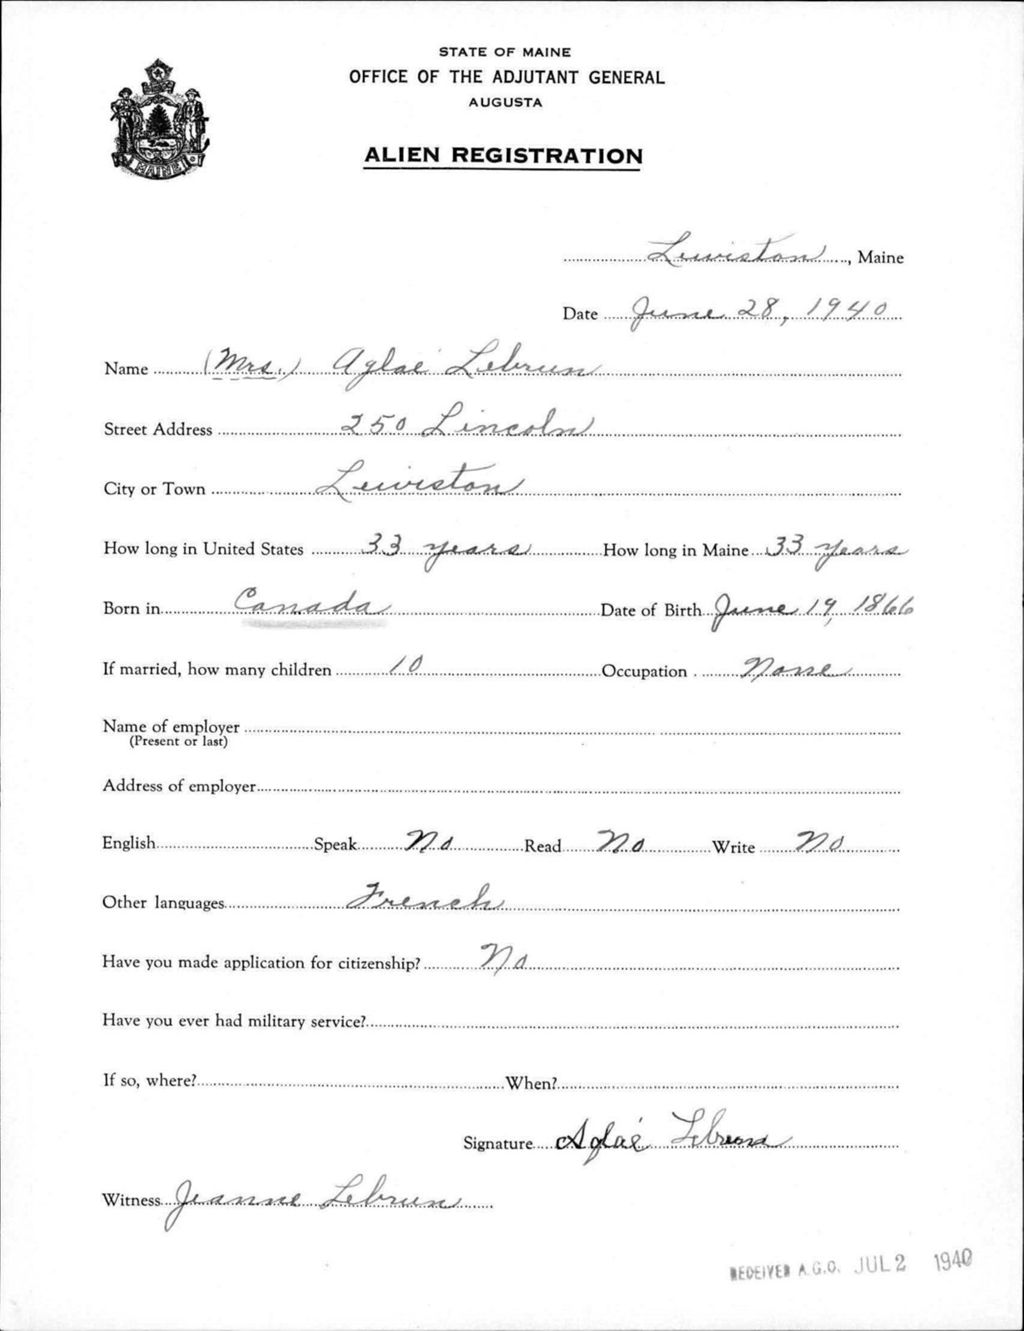 STATE OF MAINE
OFFICE OF THE ADJUTANT GENERAL
AUGUSTA
ALIEN REGISTRATION
MAINE
Lewiston, Maine
Date June 28, 1940
Name (Mrs.) Aglaé Lebrun
Street Address 250 Lincoln
City or Town Lewiston
How long in United States 33 years How long in Maine 33 years
Born in Canada Date of Birth June 19, 1866
If married, how many children 10 Occupation None
Name of employer
(Present or last)
Address of employer
English Speak No Read No Write No
Other languages French
Have you made application for citizenship? No
Have you ever had military service?
If so, where? When?
Signature Aglaé Lebrun
Witness Jeanne Lebrun
RECEIVED A.G.O. JUL 2 1940